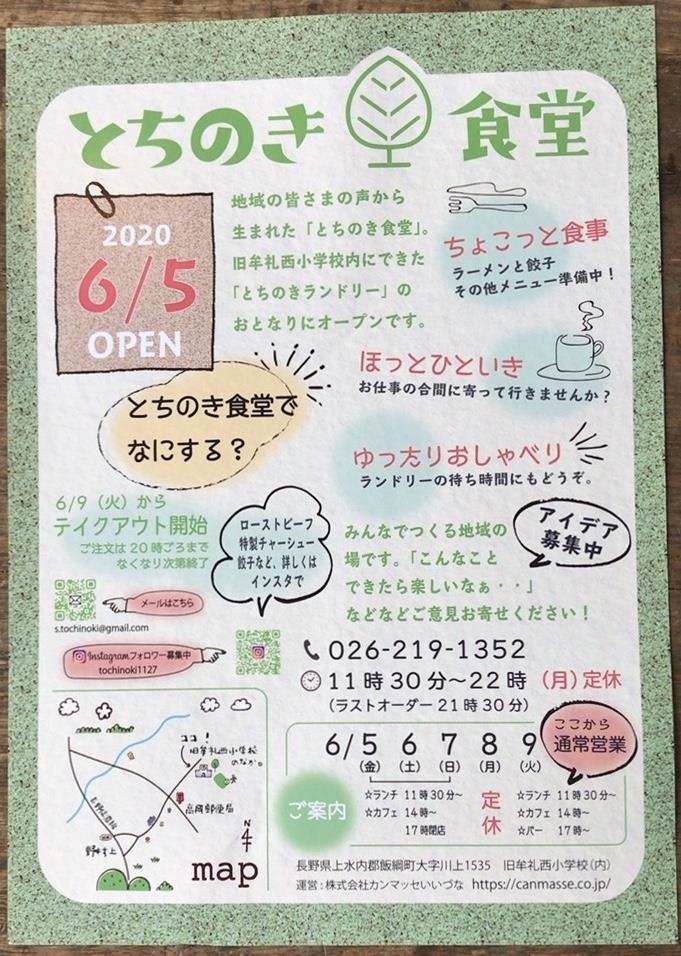 とちのき 食堂
2020
6/5
OPEN
地域の皆さまの声から
生まれた「とちのき食堂」。
旧牟礼西小学校内にできた
「とちのきランドリー」の
おとなりにオープンです。
ちょこっと食事
ラーメンと餃子
その他メニュー準備中！
ほっとひといき
お仕事の合間に寄って行きませんか？
とちのき食堂で
なにする？
ゆったりおしゃべり
ランドリーの待ち時間にもどうぞ。
6/9（火）から
テイクアウト開始
ご注文は20時ごろまで
なくなり次第終了
ローストビーフ
特製チャーシュー
餃子など、詳しくは
インスタで
アイデア
募集中
みんなでつくる地域の
場です。「こんなこと
できたら楽しいなぁ・・」
などなどご意見お寄せください！
メールはこちら
s.tochinoki@gmail.com
Instagramフォロワー募集中
tochinoki1127
026-219-1352
11時30分〜22時 （月）定休
（ラストオーダー21時30分）
ここから
通常営業
6/5 6 7 8 9
（金）（土）（日）（月）（火）
ご案内
☆ランチ 11時30分〜
☆カフェ 14時〜
17時閉店
定休
☆ランチ 11時30分〜
☆カフェ 14時〜
☆バー 17時〜
ココ！
旧牟礼西小学校
のなか。
高岡郵便局
野村上
N
4
map
長野県上水内郡飯綱町大字川上1535 旧牟礼西小学校（内）
運営：株式会社カンマッセいいづな https://canmasse.co.jp/